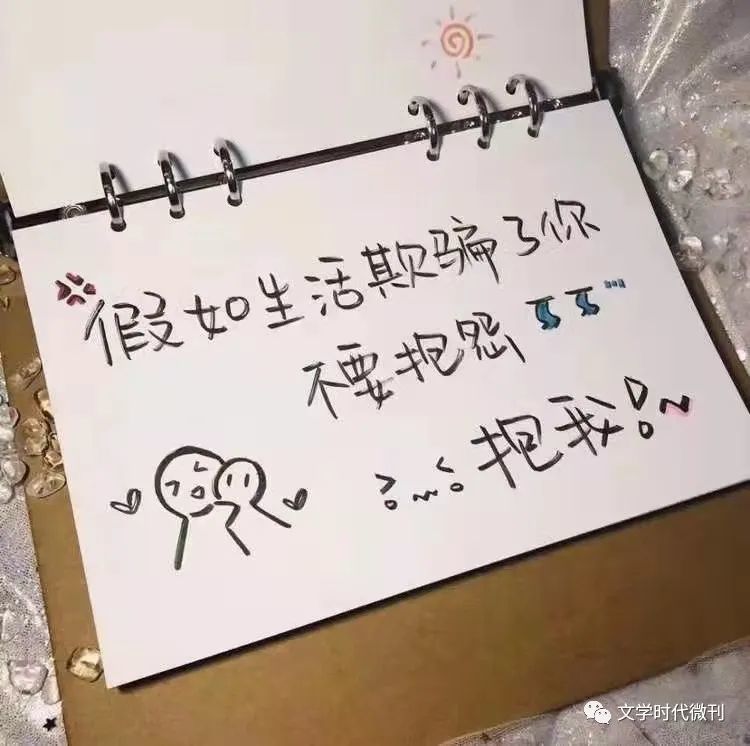 假如生活欺骗了你
不要抱怨
抱我!~
文学时代微刊